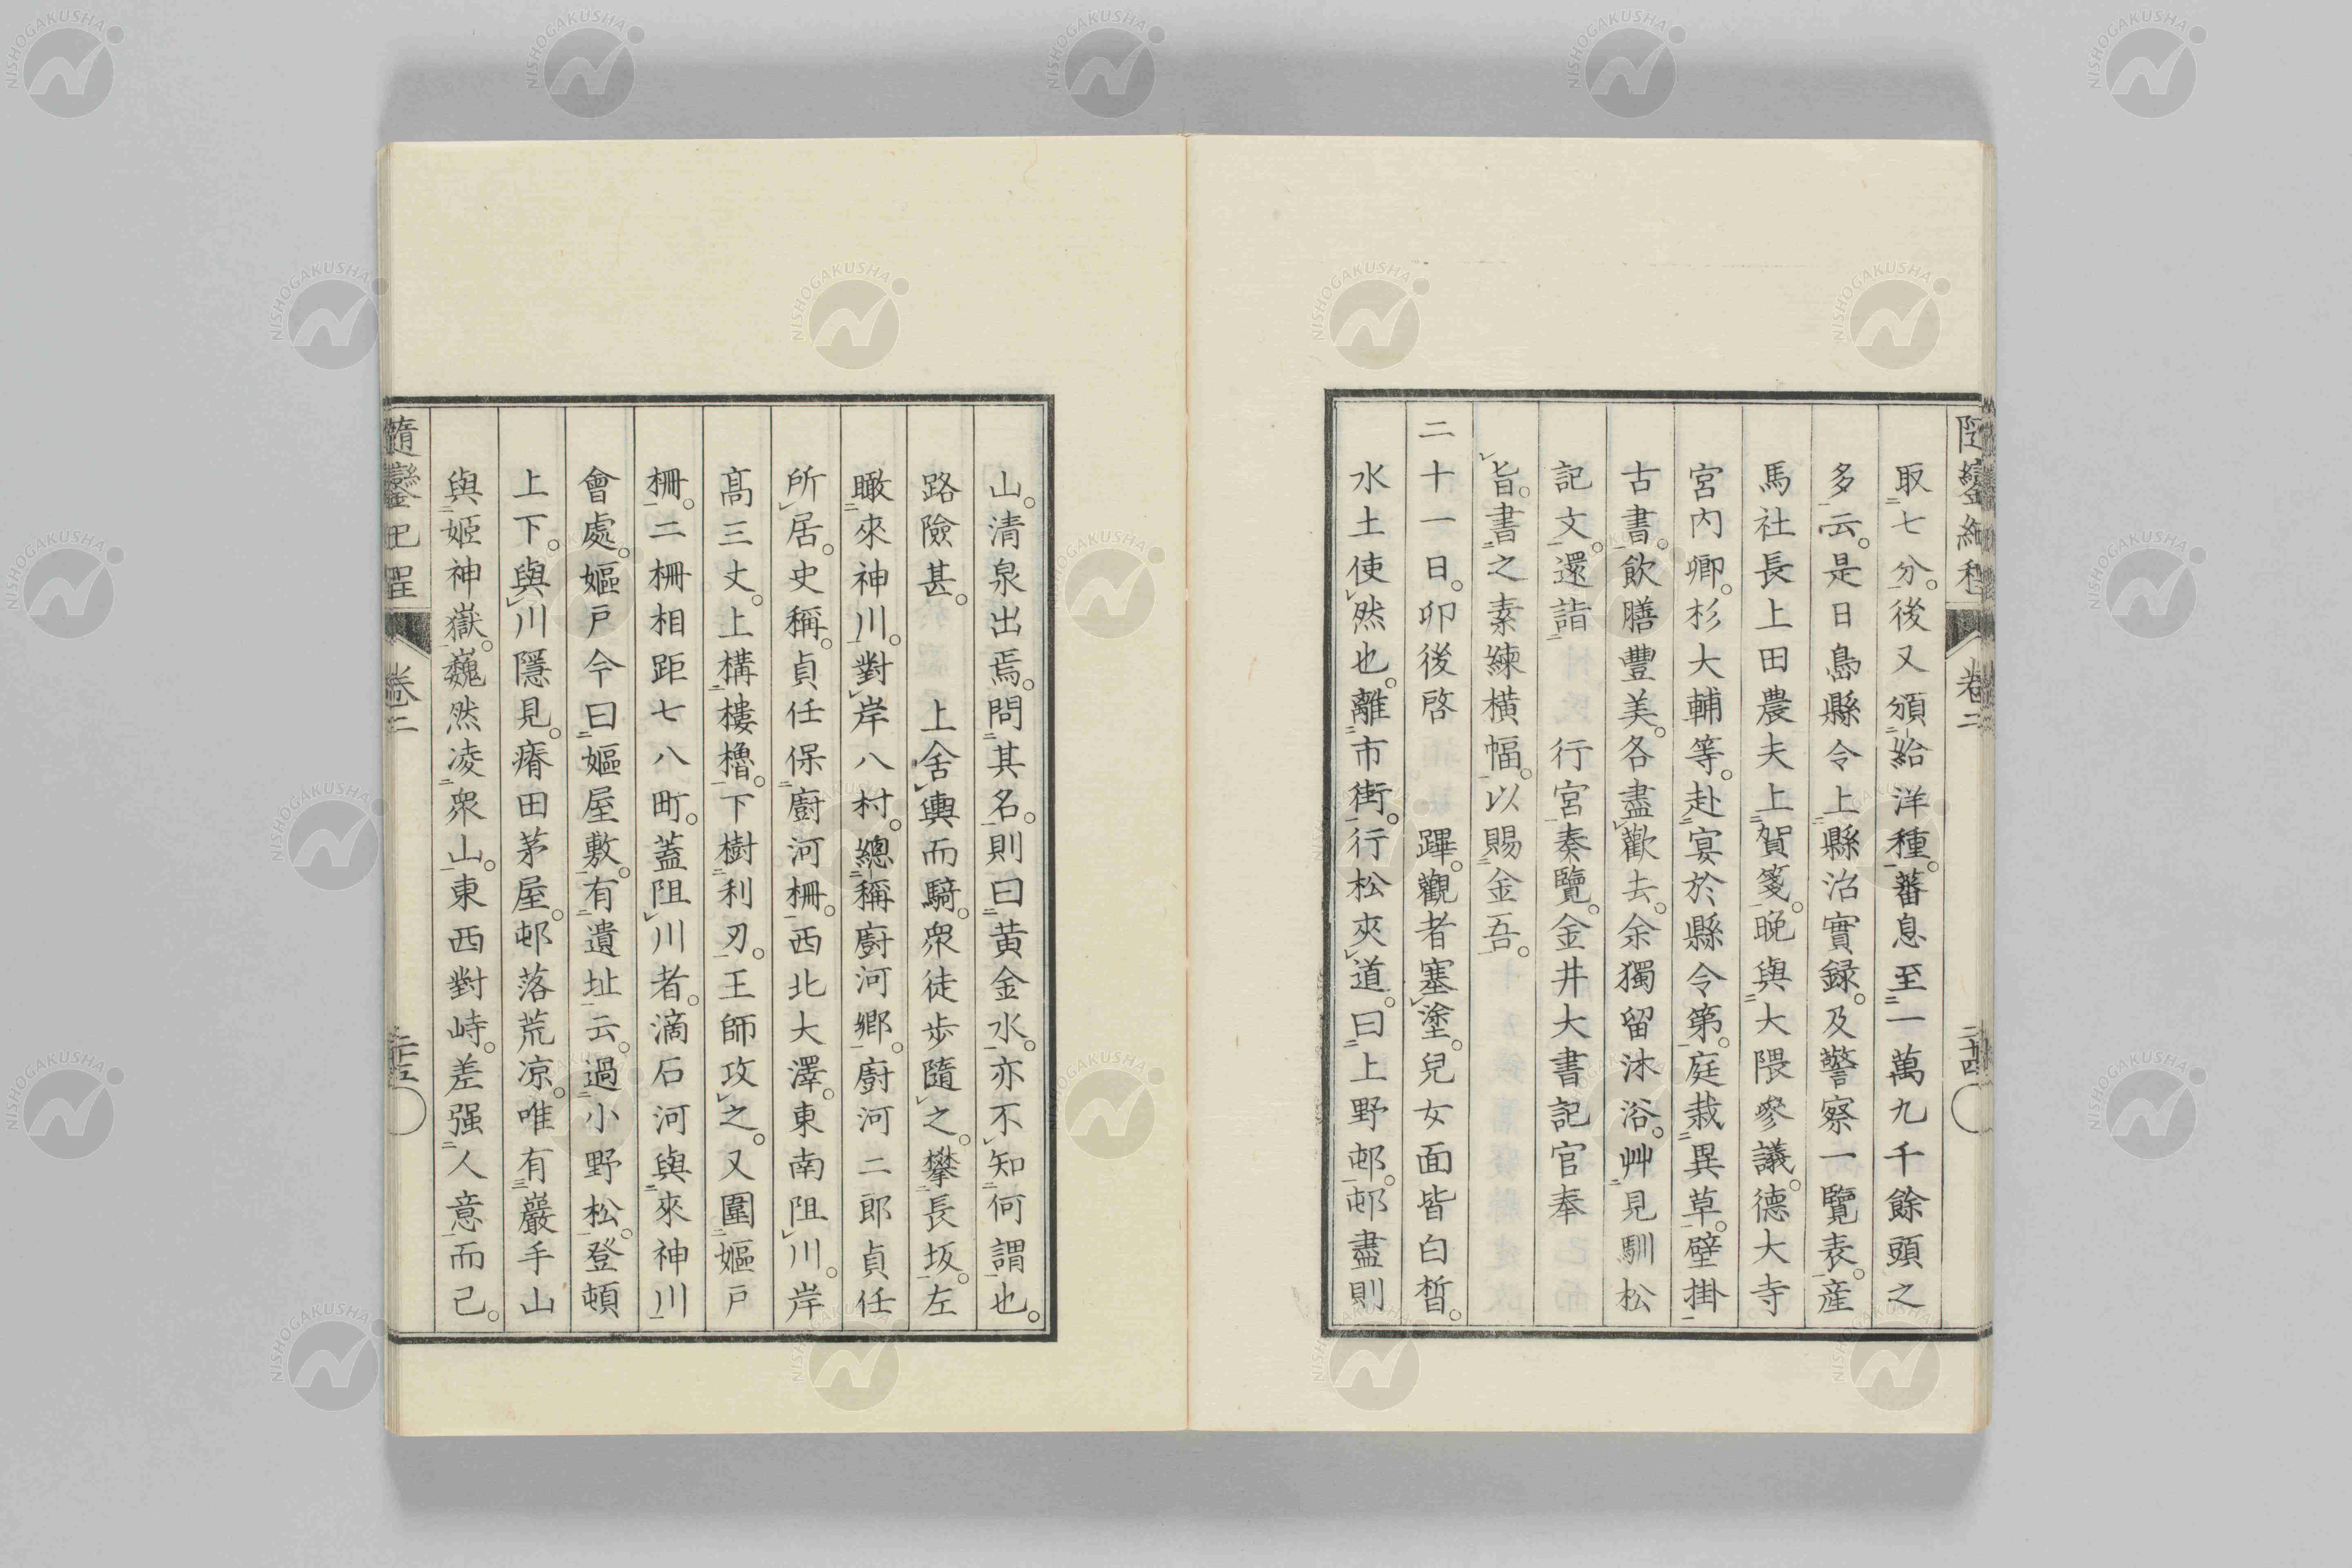 隨鑾紀程 卷二 二十四
取七分。後又頒給洋種。蕃息至一萬九千餘頭之
多云。是日島縣令上縣治實録。及警察一覽表。産
馬社長上田農夫上賀箋。晩與大隈參議。德大寺
宮內卿。杉大輔等。赴宴於縣令第。庭栽異草。壁掛
古書。飲膳豐美。各盡歡去。余獨留沐浴。艸見馴松
記文。還詣 行宮奏覽。金井大書記官奉
旨。書之素練橫幅。以賜金吾。
二十一日。卯後啓 蹕。觀者塞塗。兒女面皆白皙。
水土使然也。離市街。行松夾道。曰上野邨。邨盡則
山。清泉出焉。問其名。則曰黃金水。亦不知何謂也。
路險甚。 上舍輿而騎。衆徒歩隨之。攀長坂。左
瞰來神川。對岸八村。總稱廚河鄉。廚河二郎貞任
所居。史稱。貞任保廚河柵。西北大澤。東南阻川。岸
高三丈。上構樓櫓。下樹利刃。王師攻之。又圍嫗戸
柵。二柵相距七八町。蓋阻川者。滴石河與來神川
會處。嫗戸今曰嫗屋敷。有遺址云。過小野松。登頓
上下。與川隱見。瘠田茅屋。邨落荒凉。唯有巖手山
與姬神嶽。巍然凌衆山。東西對峙。差强人意而已。
隨鑾紀程 卷二 二十五